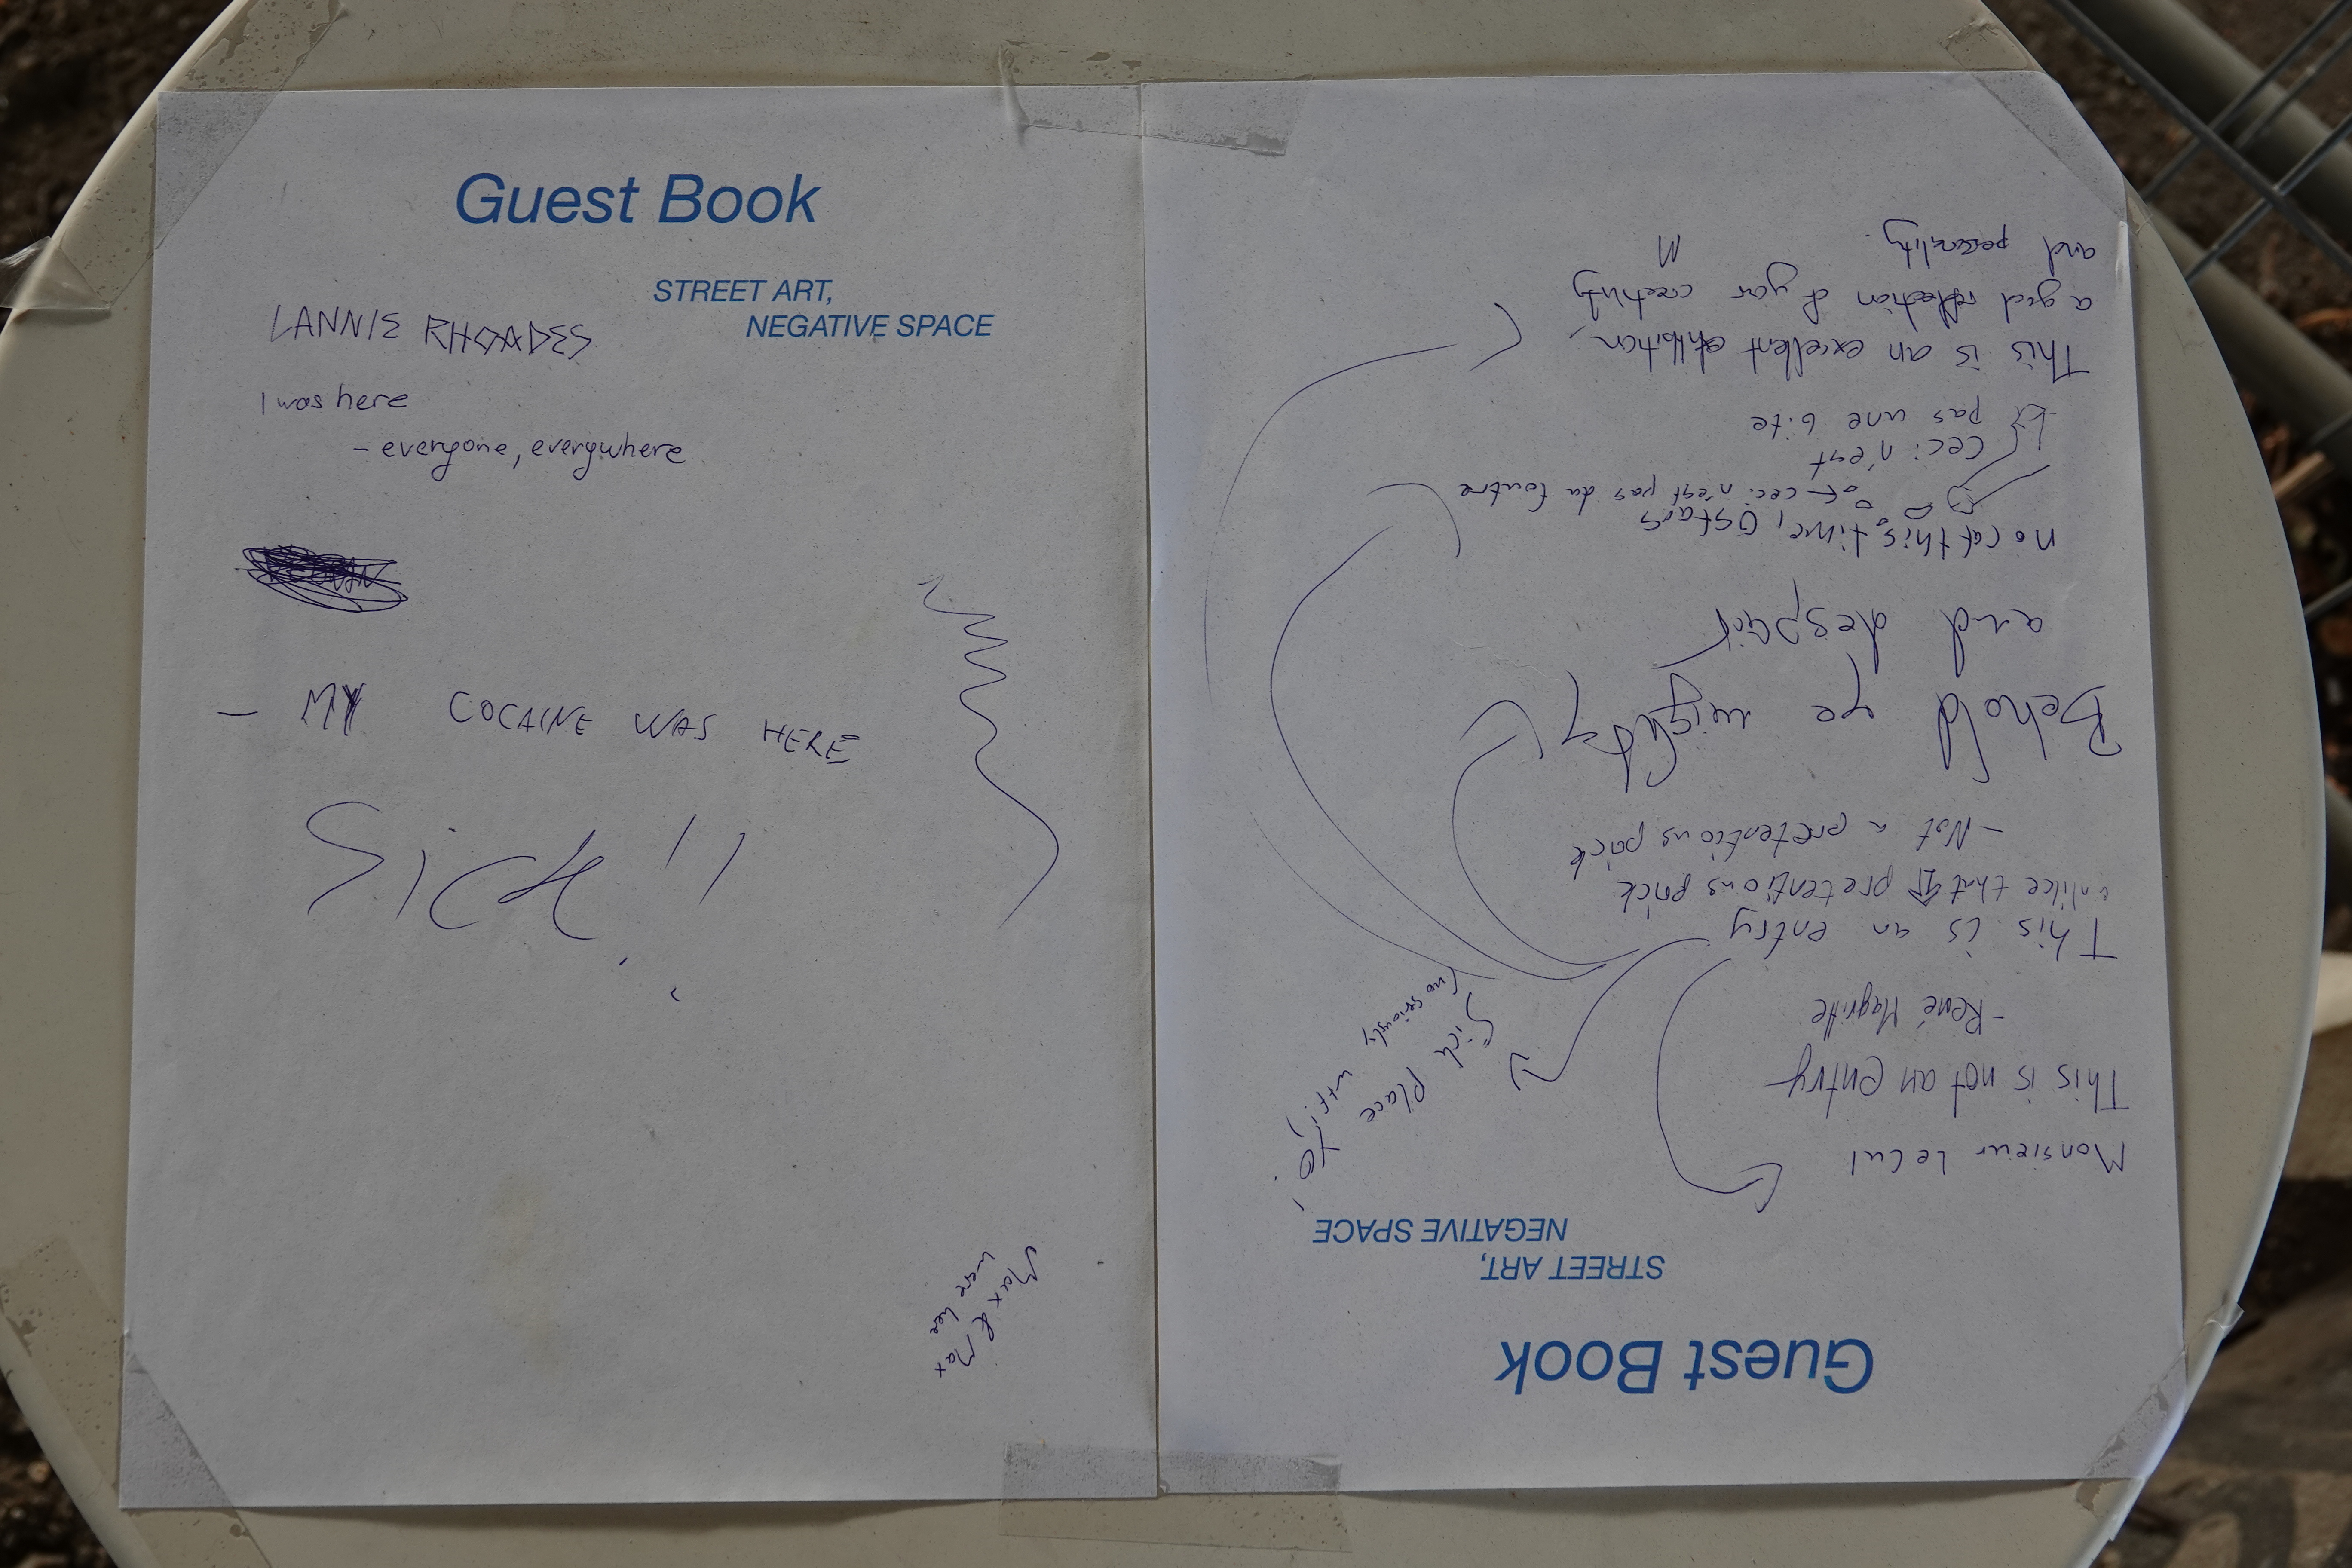 Guest Book
STREET ART,
NEGATIVE SPACE
LANNIE RHOADES
I was here
- everyone, everywhere
- MY COCAINE WAS HERE
Sick!!
Max & Max
were here
Guest Book
STREET ART,
NEGATIVE SPACE
Monsieur LeCul
This is not an entry
- René Magritte
This is an entry
unlike that pretentious prick
- Not a pretentious prick
Behold ye mighty
and despair
no cat this time, 0 stars
ceci n'est pas du foutre
ceci n'est
pas une bite
This is an excellent exhibition,
a good reflection of your creativity
and personality.
M
Yo!
Sick place
(no seriously, wtf!)